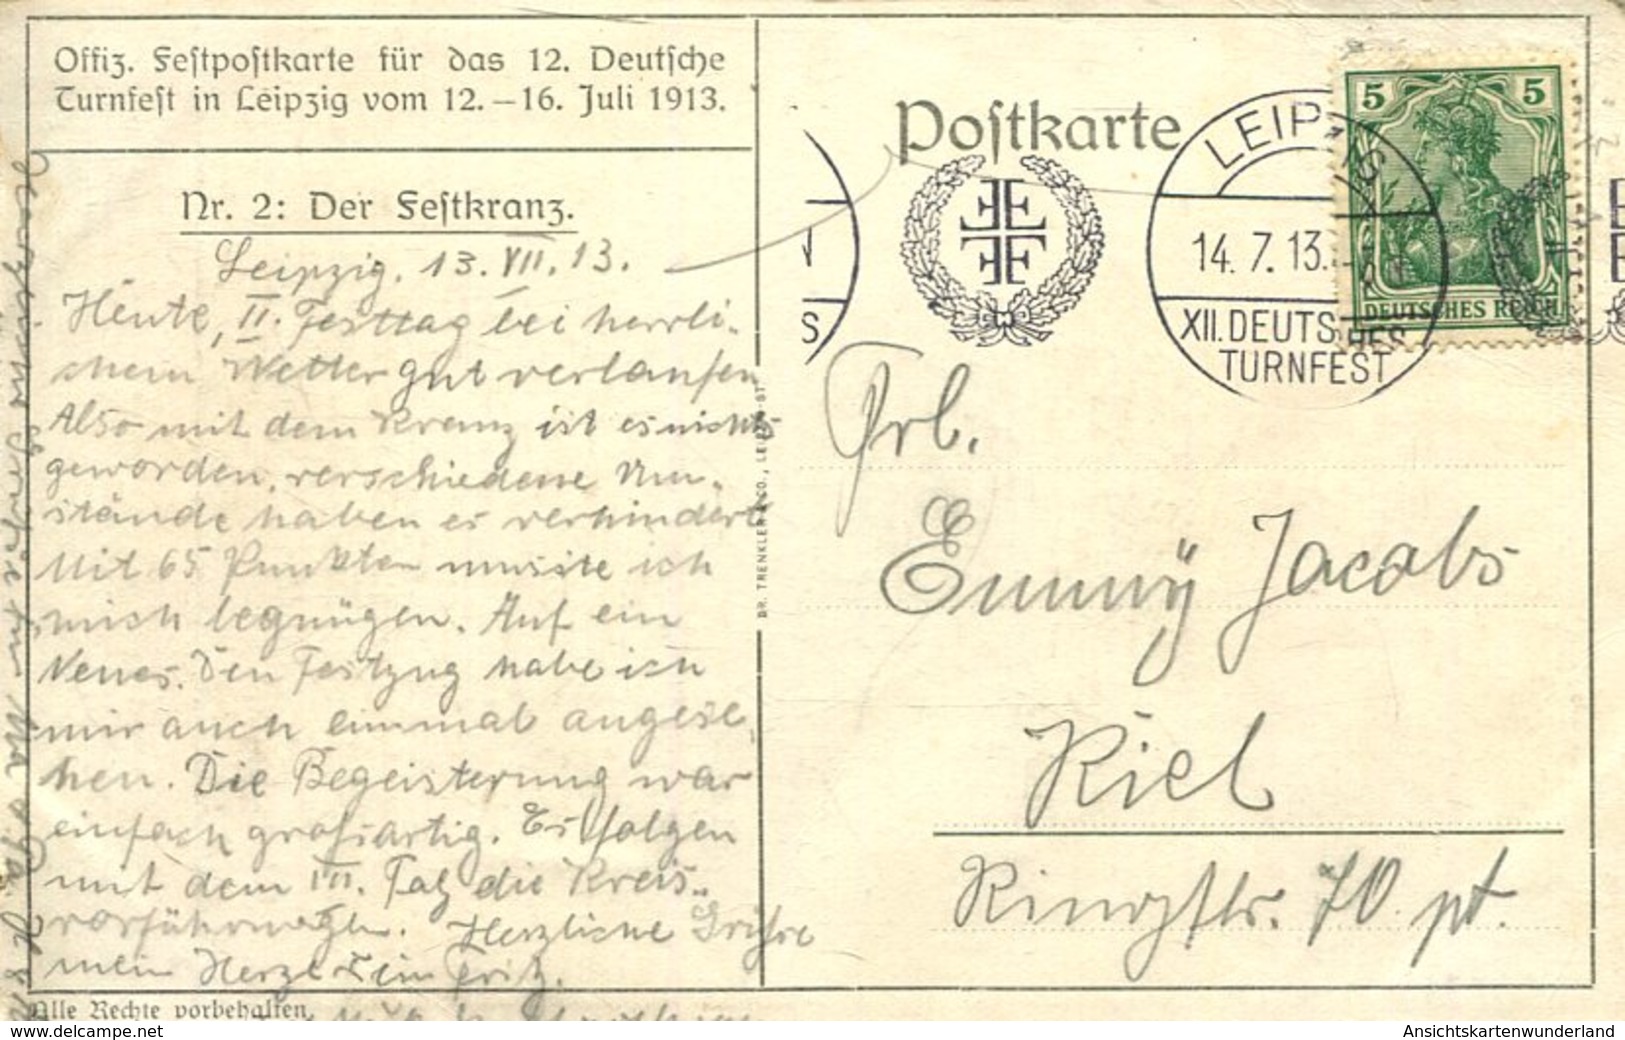 Offiz. Festpostkarte für das 12. Deutsche
Turnfest in Leipzig vom 12.–16. Juli 1913.
Nr. 2: Der Festkranz.
Leipzig, 13. VII. 13.
Heute, II. Festtag bei herrli-
chem Wetter gut verlaufen
Also mit dem Kranz ist es nichts
geworden, verschiedene Um-
stände haben es verhindert
Mit 65 Punkten musste ich
mich begnügen. Auf ein
Neues. Den Festzug habe ich
mir auch einmal angese-
hen. Die Begeisterung war
einfach großartig. Es folgen
mit dem III. Tag die Kreis-
vorführungen. Herzliche Grüße
mein Herzl Dein Fritz.
Alle Rechte vorbehalten.
DR. TRENKLER & CO., LEIPZIG-ST
Postkarte
S
LEIPZIG
14. 7. 13.
XII. DEUTSCHES
TURNFEST
5 5
DEUTSCHES REICH
Frl.
Emmy Jacobs
Kiel
Ringstr. 70 pt.
https://www.delcampe.net
Ansichtskartenwunderland